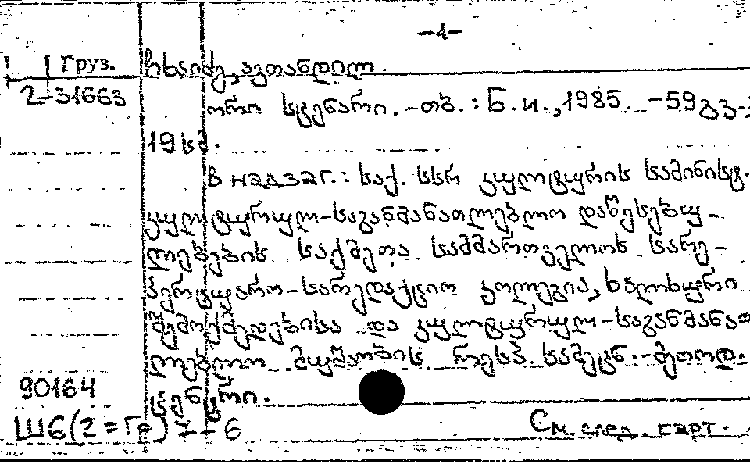 -1-
Груз. ჩხაიძე, ავთანდილ.
2-31663 ორი სცენარი. -თბ. : Б.и., 1985. -59გვ.;
19 სმ.
В надзаг.: საქ. სსრ კულტურის სამინისტ.
კულტურულ-საგანმანათლებლო დაწესებუ-
ლებების საქმეთა სამმართველოს სარე-
პერტუარო-სარედაქციო კოლეგია, ხალხური
შემოქმედებისა და კულტურულ-საგანმანათ
ლებლო მუშაობის რესპ. სამეცნ.-მეთოდ.
90164 ცენტრი.
Ш6(2=Гр)7-6 См. след. карт.